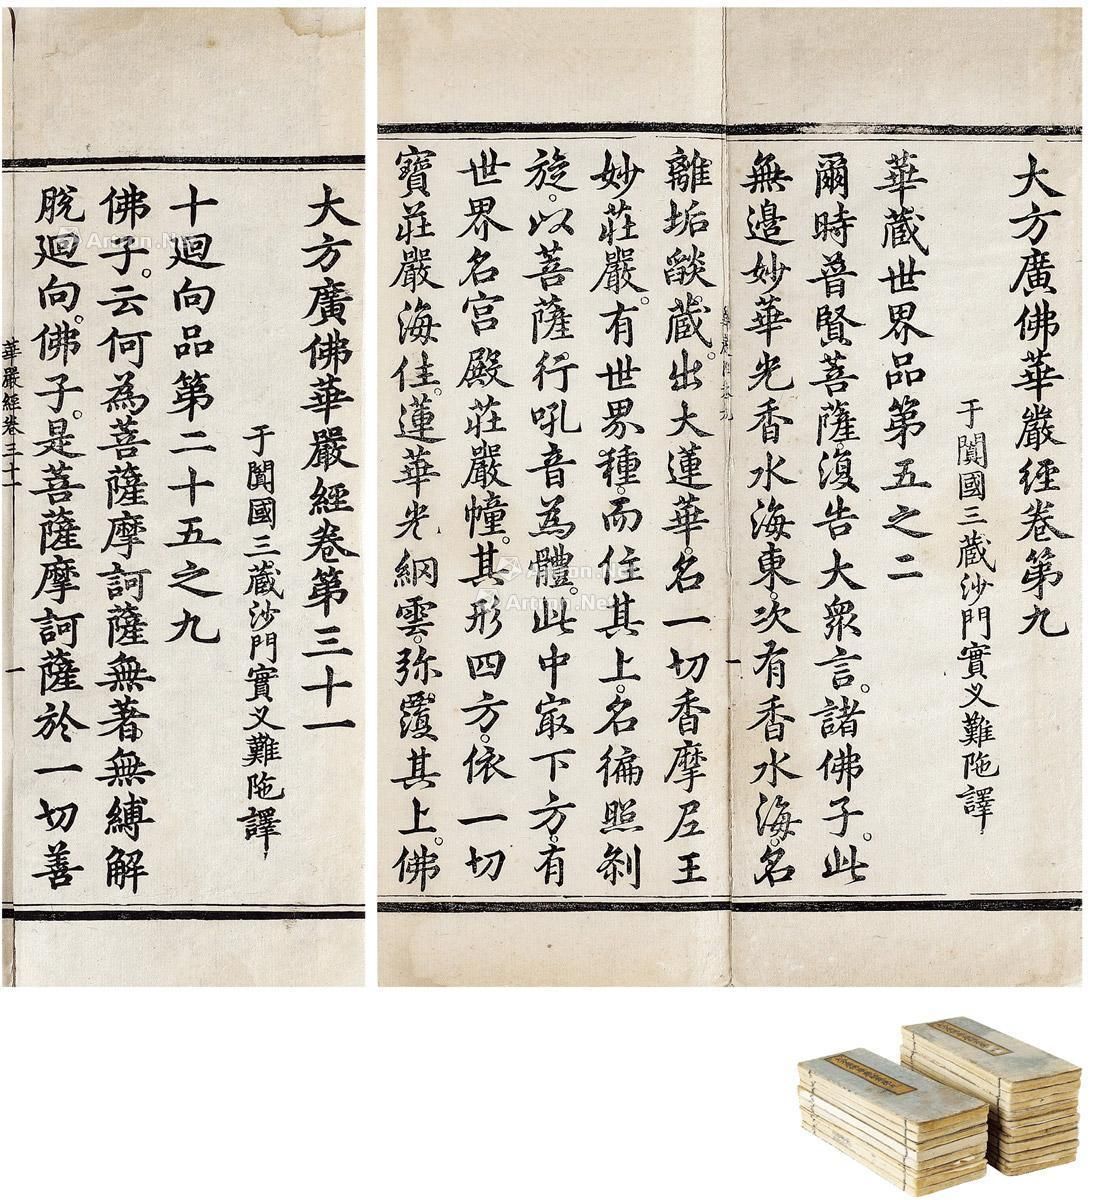 大方廣佛華嚴經卷第九
于闐國三藏沙門實叉難陁譯
華藏世界品第五之二
爾時普賢菩薩。復告大衆言。諸佛子。此
無邊妙華光香水海東。次有香水海。名
離垢燄藏。出大蓮華。名一切香摩尼王
妙莊嚴。有世界種。而住其上。名徧照剎
旋。以菩薩行吼音為體。此中㝡下方。有
世界名宮殿莊嚴幢。其形四方。依一切
寶莊嚴海住。蓮華光網雲。弥覆其上。佛
一
大方廣佛華嚴經卷第三十一
于闐國三藏沙門實叉難陁譯
十迴向品第二十五之九
佛子。云何為菩薩摩訶薩無著無縛解
脫迴向。佛子。是菩薩摩訶薩於一切善
華嚴經卷三十一
一
Artron.Net
Artron.Net
Artron.Net
Artron.Net